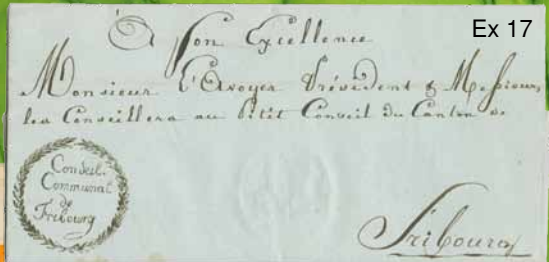 Ex 17
A Son Excellence
Monsieur L'Avoyer Président & Messieurs
les Conseillers au Petit Conseil du Canton de
Fribourg
Conseil
Communal
de
Fribourg